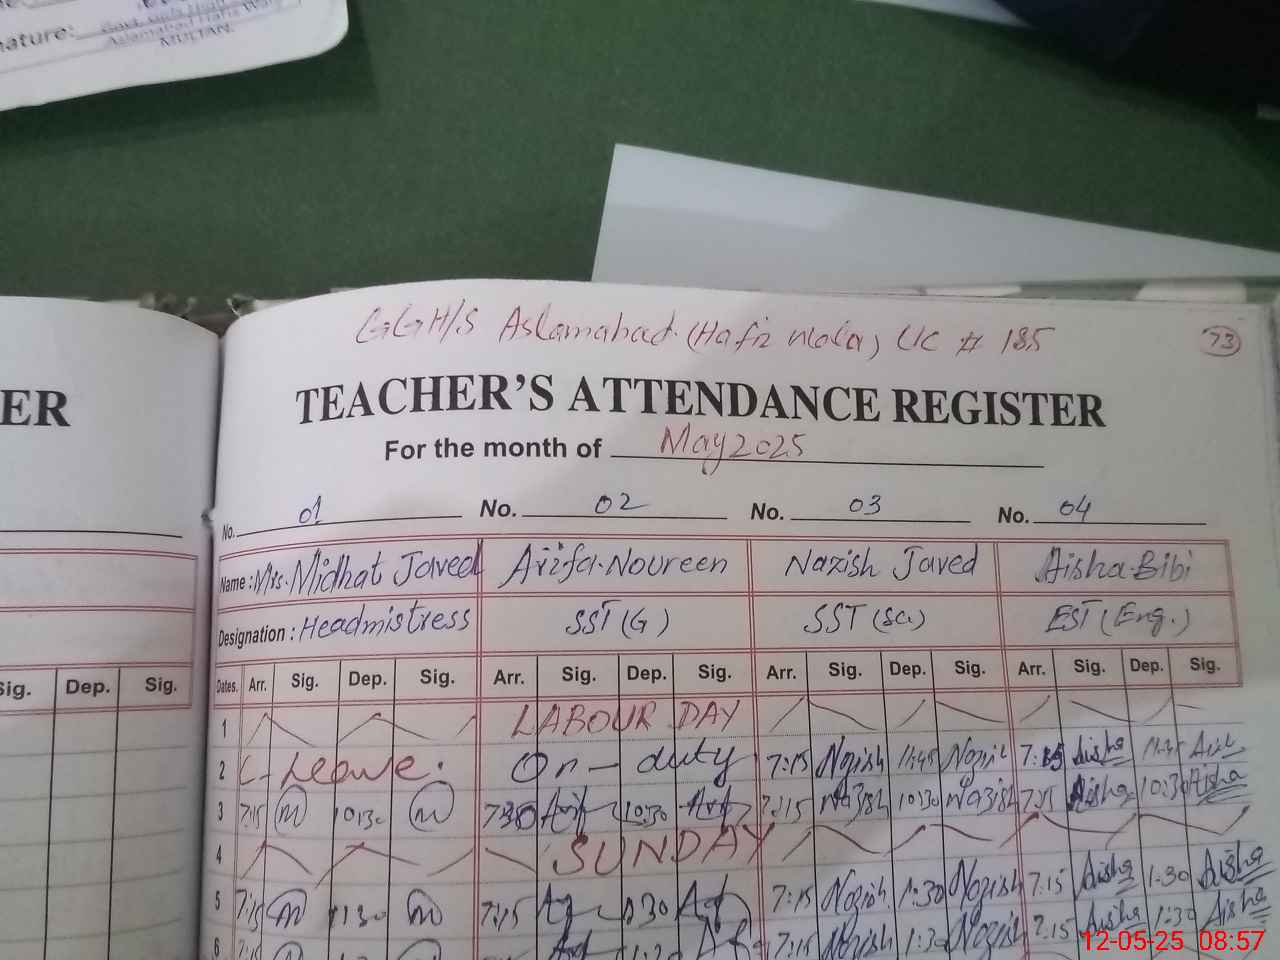 nature:
MULTAN.
GGH/S Aslamabad (Hafiz wala) UC # 185
73
TEACHER'S ATTENDANCE REGISTER
For the month of May 2025
No. 01 No. 02 No. 03 No. 04
Name: Mrs. Midhat Javed Arifa Noureen Nazish Javed Aisha Bibi
Designation: Headmistress SST (G) SST (Sc.) EST (Eng.)
Dates. Arr. Sig. Dep. Sig. Arr. Sig. Dep. Sig. Arr. Sig. Dep. Sig. Arr. Sig. Dep. Sig.
1 LABOUR DAY
2 C-Leave. On-duty 7:15 Nazish 11:45 Nazish 7:15 Aisha
3 7:15 m 10:30 m 7:30 10:30 7:15 Nazish 10:30 Nazish 7:15 Aisha 10:30 Aisha
4 SUNDAY
5 7:15 m 1:30 m 7:15 1:30 7:15 Nazish 1:30 Nazish 7:15 Aisha 1:30 Aisha
6 7:15 1:30 7:15 Nazish 1:30 Nazish 7:15 Aisha 1:30 Aisha
ER
Sig. Dep. Sig.
12-05-25 08:57